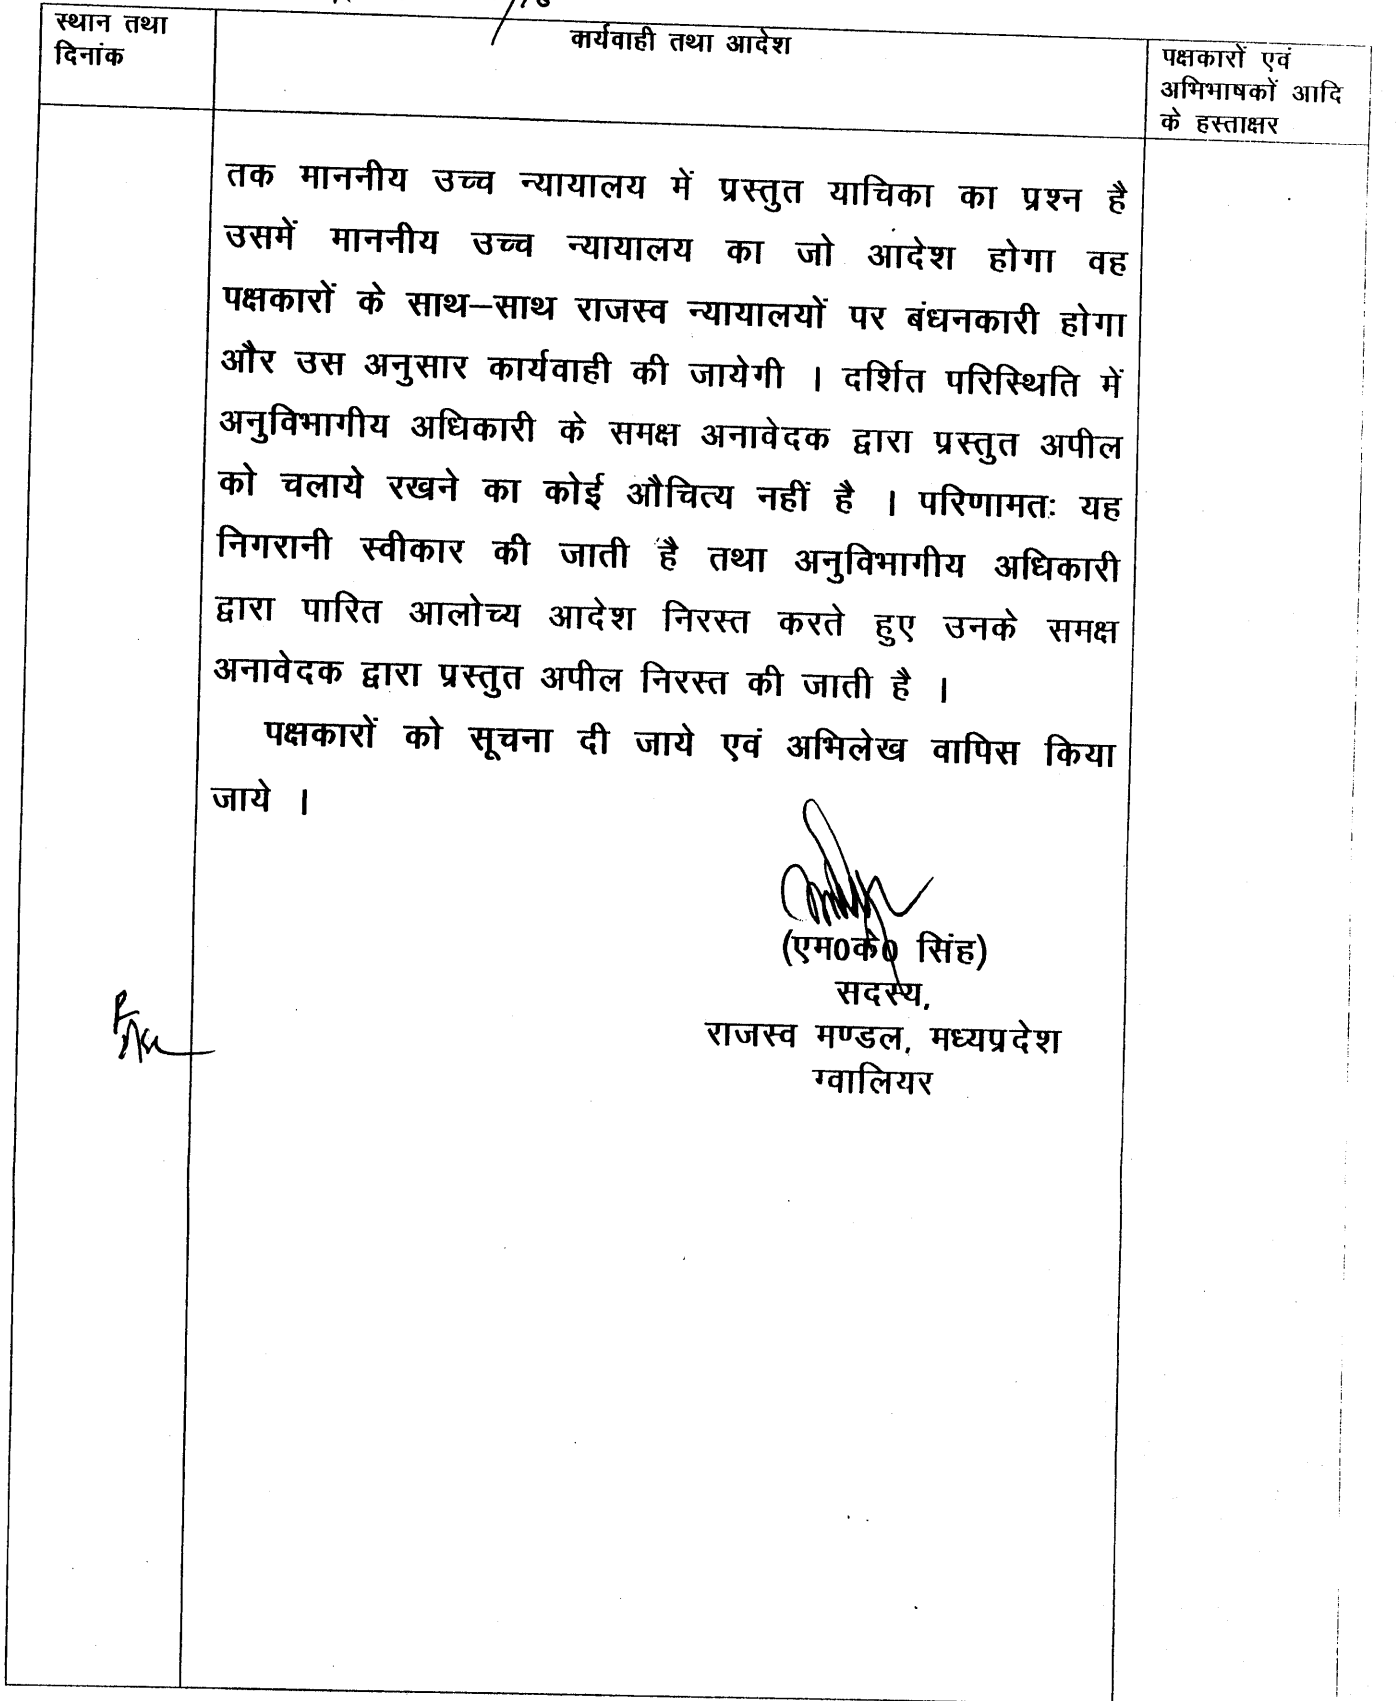 स्थान तथा
दिनांक
कार्यवाही तथा आदेश
पक्षकारों एवं
अभिभाषकों आदि
के हस्ताक्षर
तक माननीय उच्च न्यायालय में प्रस्तुत याचिका का प्रश्न है
उसमें माननीय उच्च न्यायालय का जो आदेश होगा वह
पक्षकारों के साथ–साथ राजस्व न्यायालयों पर बंधनकारी होगा
और उस अनुसार कार्यवाही की जायेगी । दर्शित परिस्थिति में
अनुविभागीय अधिकारी के समक्ष अनावेदक द्वारा प्रस्तुत अपील
को चलाये रखने का कोई औचित्य नहीं है । परिणामतः यह
निगरानी स्वीकार की जाती है तथा अनुविभागीय अधिकारी
द्वारा पारित आलोच्य आदेश निरस्त करते हुए उनके समक्ष
अनावेदक द्वारा प्रस्तुत अपील निरस्त की जाती है ।
पक्षकारों को सूचना दी जाये एवं अभिलेख वापिस किया
जाये ।
(एम0के0 सिंह)
सदस्य,
राजस्व मण्डल, मध्यप्रदेश
ग्वालियर